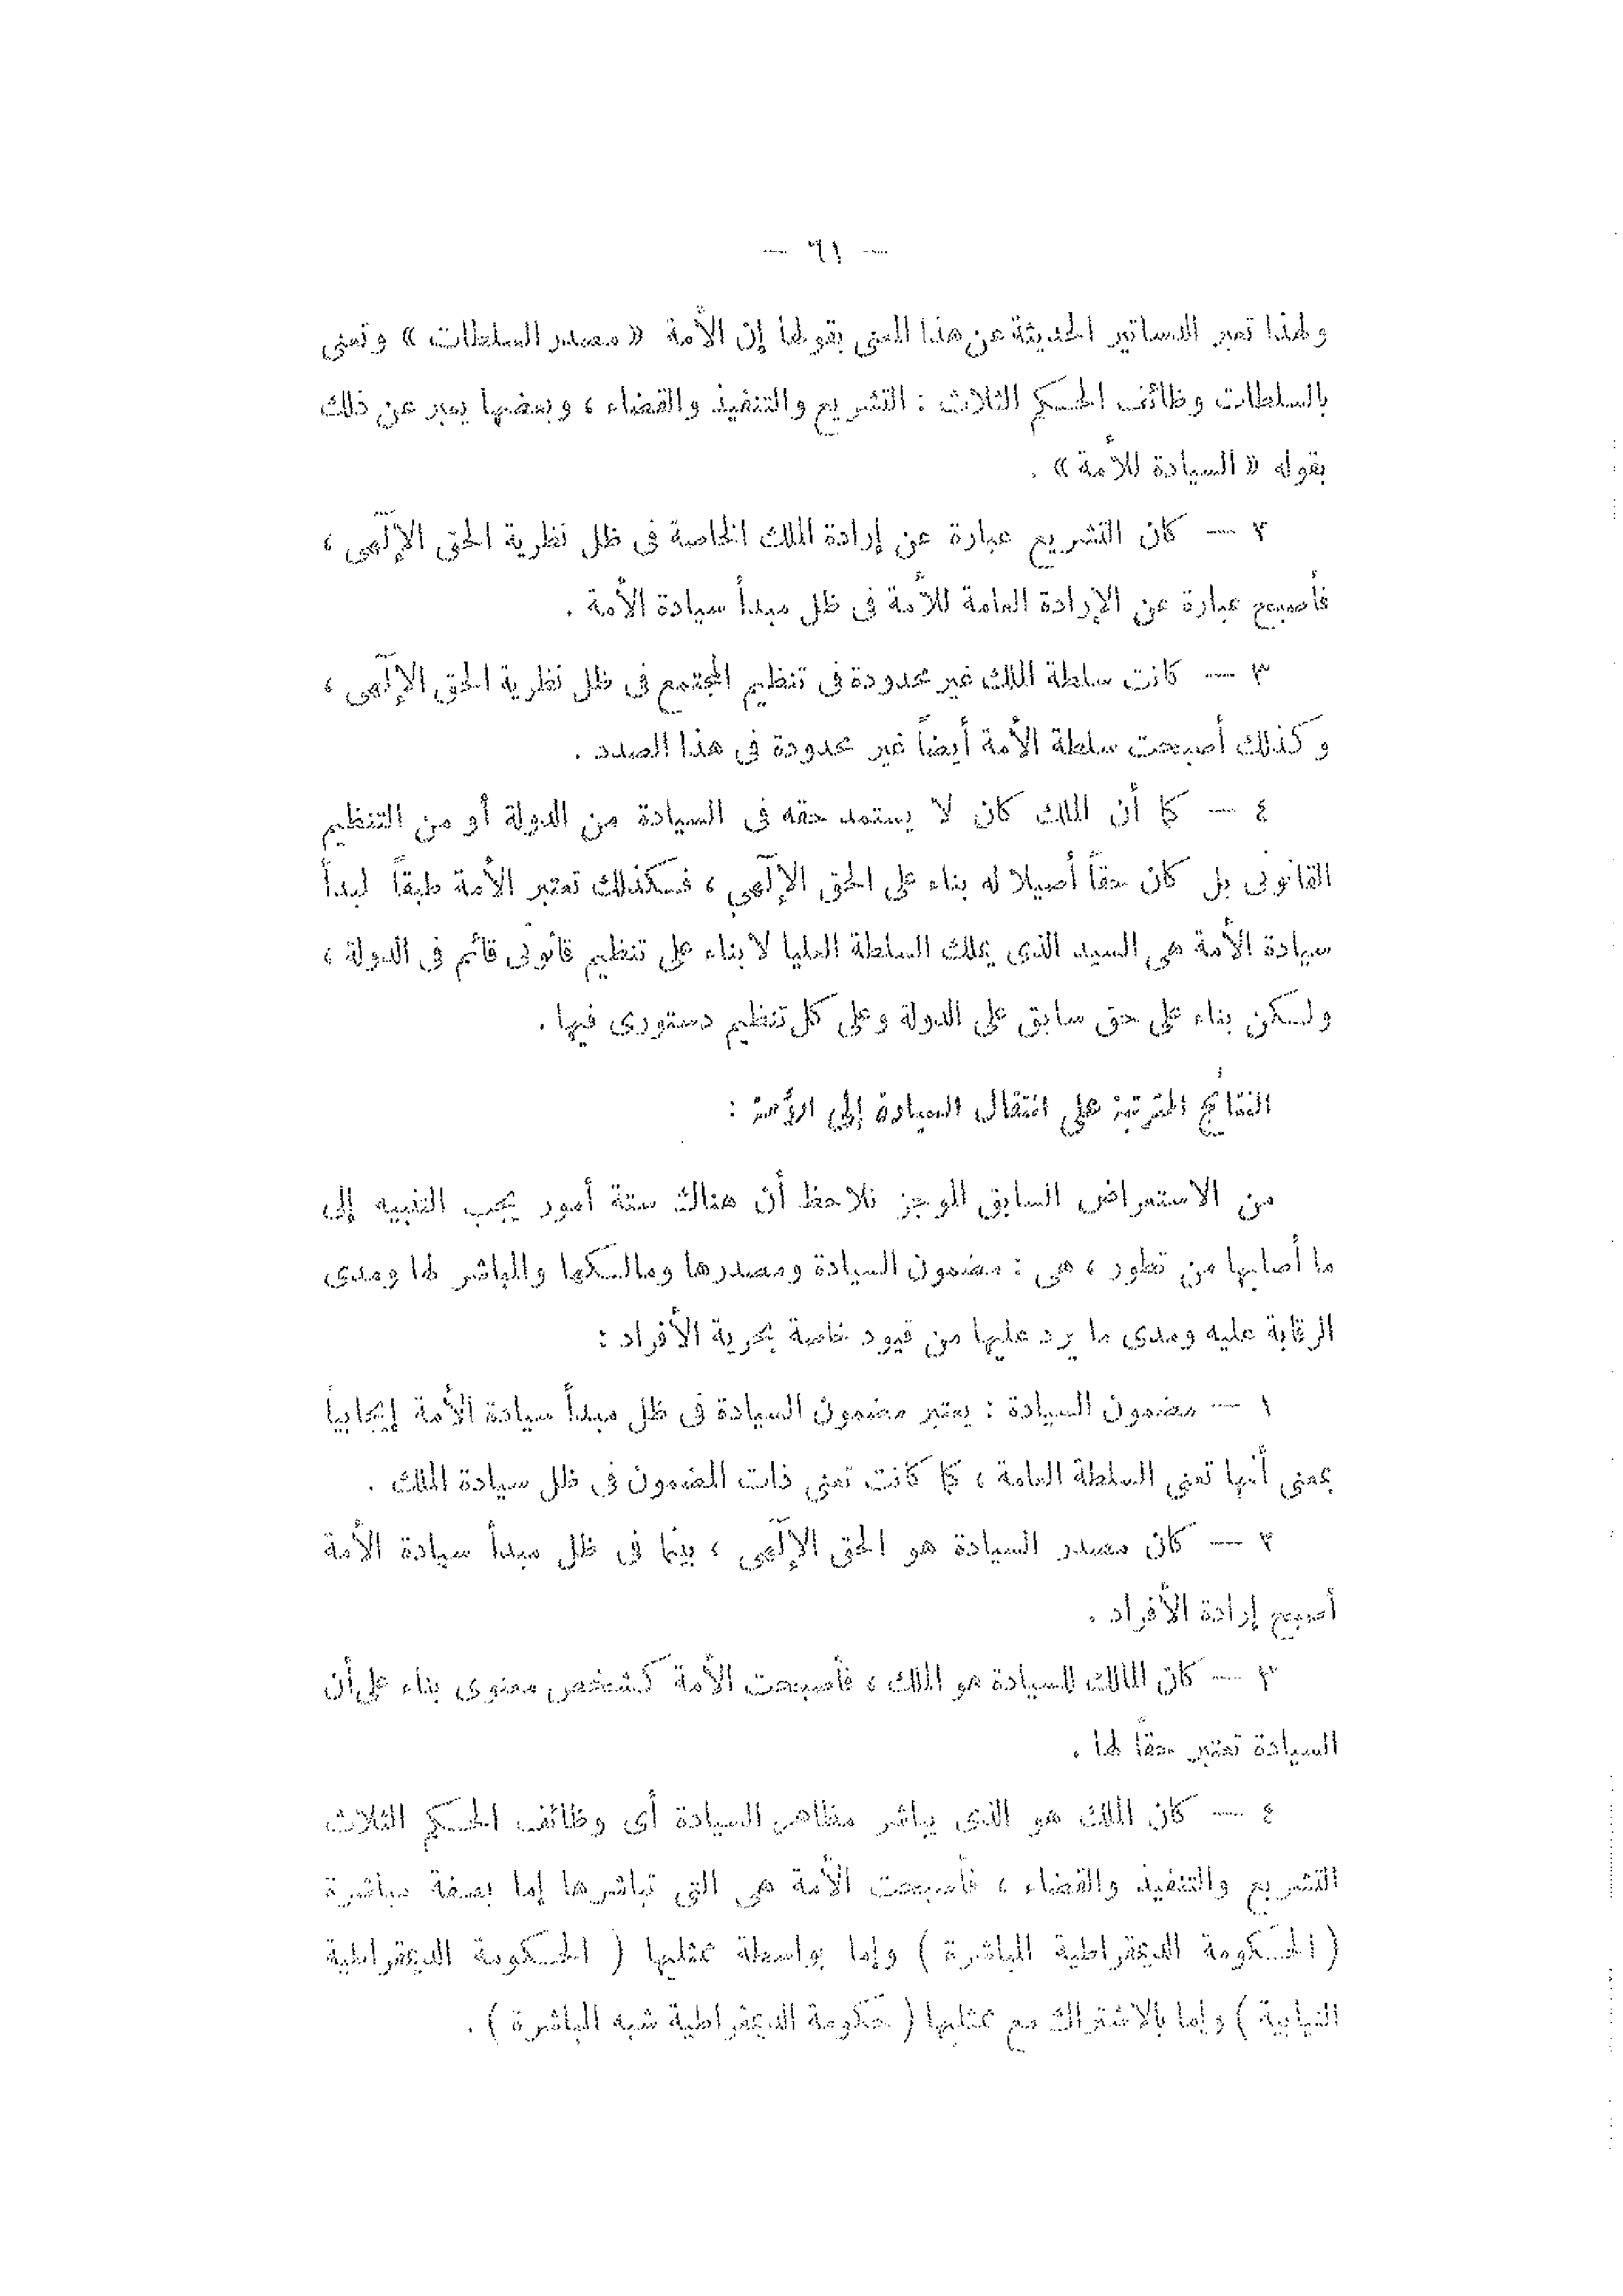 — ٦١ —
ولهذا تعبر الدساتير الحديثة عن هذا المعنى بقولها إن الأمة « مصدر السلطات » وتعنى
بالسلطات وظائف الحكم الثلاث : التشريع والتنفيذ والقضاء ، وبعضها يعبر عن ذلك
بقوله « السيادة للأمة » .
٢ — كان التشريع عبارة عن إرادة الملك الخاصة فى ظل نظرية الحق الإلهى ،
فأصبح عبارة عن الإرادة العامة للأمة فى ظل مبدأ سيادة الأمة .
٣ — كانت سلطة الملك غير محدودة فى تنظيم المجتمع فى ظل نظرية الحق الإلهى ،
وكذلك أصبحت سلطة الأمة أيضاً غير محدودة فى هذا الصدد .
٤ — كما أن الملك كان لا يستمد حقه فى السيادة من الدولة أو من التنظيم
القانونى بل كان حقاً أصيلا له بناء على الحق الإلهى ، فكذلك تعتبر الأمة طبقاً لمبدأ
سيادة الأمة هى السيد الذى يملك السلطة العليا لا بناء على تنظيم قانونى قائم فى الدولة ،
ولكن بناء على حق سابق على الدولة وعلى كل تنظيم دستورى فيها .
النتائج المترتبة على انتقال السيادة إلى الأمة :
من الاستعراض السابق الموجز نلاحظ أن هناك ستة أمور يجب التنبيه إلى
ما أصابها من تطور ، هى : مضمون السيادة ومصدرها ومالكها والمباشر لها ومدى
الرقابة عليه ومدى ما يرد عليها من قيود خاصة بحرية الأفراد :
١ — مضمون السيادة : يعتبر مضمون السيادة فى ظل مبدأ سيادة الأمة إيجابياً
بمعنى أنها تعنى السلطة العامة ، كما كانت تعنى ذات المضمون فى ظل سيادة الملك .
٢ — كان مصدر السيادة هو الحق الإلهى ، بينما فى ظل مبدأ سيادة الأمة
أصبح إرادة الأفراد .
٣ — كان المالك للسيادة هو الملك ، فأصبحت الأمة كشخص معنوى بناء على أن
السيادة تعتبر حقاً لها .
٤ — كان الملك هو الذى يباشر مظاهر السيادة أى وظائف الحكم الثلاث
التشريع والتنفيذ والقضاء ، فأصبحت الأمة هى التى تباشرها إما بصفة مباشرة
( الحكومة الديمقراطية المباشرة ) وإما بواسطة ممثليها ( الحكومة الديمقراطية
النيابية ) وإما بالاشتراك مع ممثليها ( حكومة الديمقراطية شبه المباشرة ) .